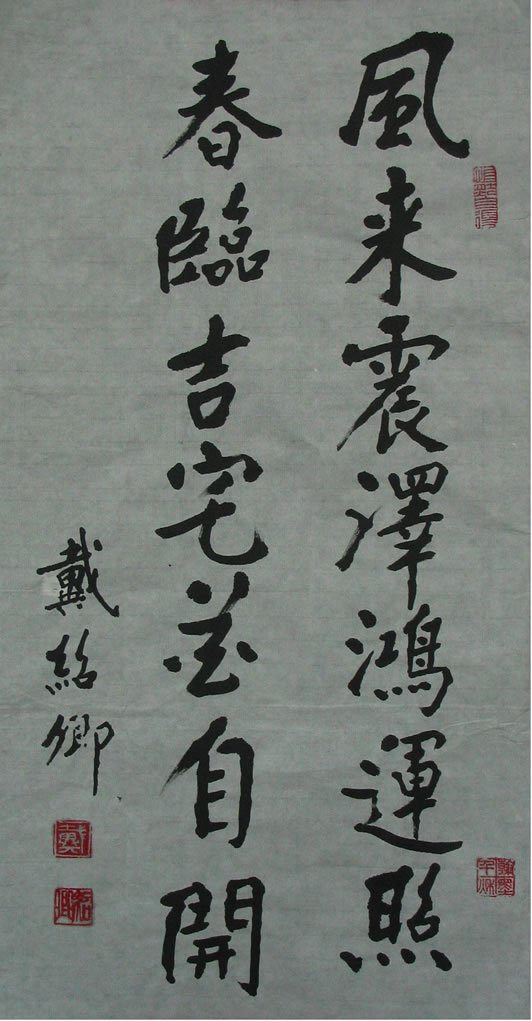 風来震澤鴻運照
春臨吉宅花自開
戴紹卿